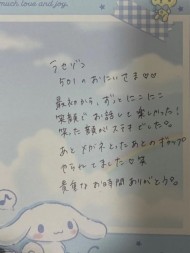 much love and joy.
ラセゾン
501のおにいさま♡♡
最初から、ずっとにこにこ
笑顔でお話して楽しかった!
笑った顔がステキでした♡
あとメガネとったあとのギャップ
やられてました♡笑
貴重なお時間ありがとう♡